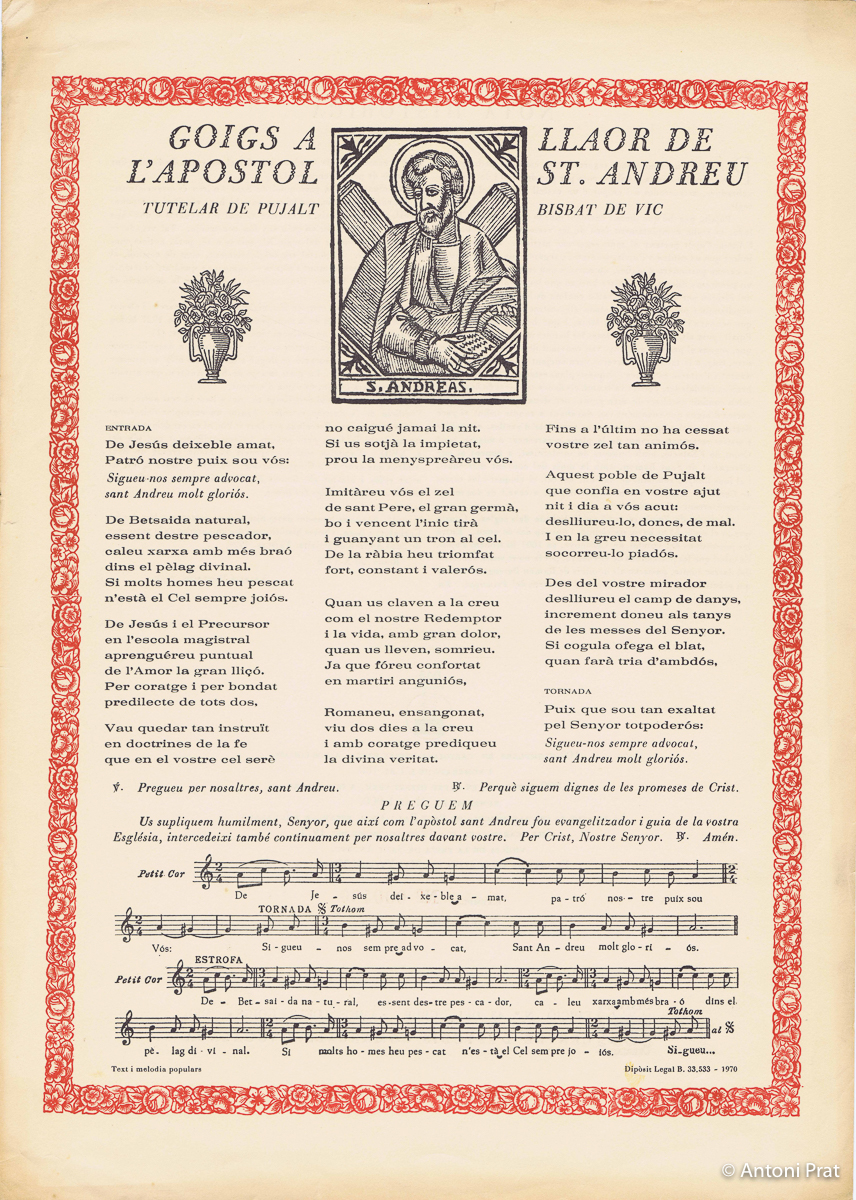 GOIGS A LLAOR DE
L'APOSTOL ST. ANDREU
TUTELAR DE PUJALT BISBAT DE VIC
S. ANDREAS.
ENTRADA
De Jesús deixeble amat,
Patró nostre puix sou vós:
Sigueu-nos sempre advocat,
sant Andreu molt gloriós.
De Betsaida natural,
essent destre pescador,
caleu xarxa amb més braó
dins el pèlag divinal.
Si molts homes heu pescat
n'està el Cel sempre joiós.
De Jesús i el Precursor
en l'escola magistral
aprenguéreu puntual
de l'Amor la gran lliçó.
Per coratge i per bondat
predilecte de tots dos,
Vau quedar tan instruït
en doctrines de la fe
que en el vostre cel serè
no caigué jamai la nit.
Si us sotjà la impietat,
prou la menyspreàreu vós.
Imitàreu vós el zel
de sant Pere, el gran germà,
bo i vencent l'inic tirà
i guanyant un tron al cel.
De la ràbia heu triomfat
fort, constant i valerós.
Quan us claven a la creu
com el nostre Redemptor
i la vida, amb gran dolor,
quan us lleven, somrieu.
Ja que fóreu confortat
en martiri anguniós,
Romaneu, ensangonat,
viu dos dies a la creu
i amb coratge prediqueu
la divina veritat.
Fins a l'últim no ha cessat
vostre zel tan animós.
Aquest poble de Pujalt
que confia en vostre ajut
nit i dia a vós acut:
deslliureu-lo, doncs, de mal.
I en la greu necessitat
socorreu-lo piadós.
Des del vostre mirador
deslliureu el camp de danys,
increment doneu als tanys
de les messes del Senyor.
Si cogula ofega el blat,
quan farà tria d'ambdós,
TORNADA
Puix que sou tan exaltat
pel Senyor totpoderós:
Sigueu-nos sempre advocat,
sant Andreu molt gloriós.
℣. Pregueu per nosaltres, sant Andreu. ℟. Perquè siguem dignes de les promeses de Crist.
PREGUEM
Us supliquem humilment, Senyor, que així com l'apòstol sant Andreu fou evangelitzador i guia de la vostra
Església, intercedeixi també contínuament per nosaltres davant vostre. Per Crist, Nostre Senyor. ℟. Amén.
Petit Cor
De Je - sús dei - xe - ble a - mat, pa - tró nos - tre puix sou
TORNADA Tothom
Vós: Si - gueu - nos sem pre ad vo - cat, Sant An - dreu molt glo - ri - ós.
ESTROFA
Petit Cor
De - Bet - sai - da na - tu - ral, es - sent des - tre pes - ca - dor, ca - leu xarxa amb més bra - ó dins el
Tothom
al
pè - lag di - vi - nal. Si molts ho - mes heu pes - cat n'es - tà el Cel sem pre jo - iós. Si - gueu...
Text i melodia populars Dipòsit Legal B. 33,533 - 1970
© Antoni Prat